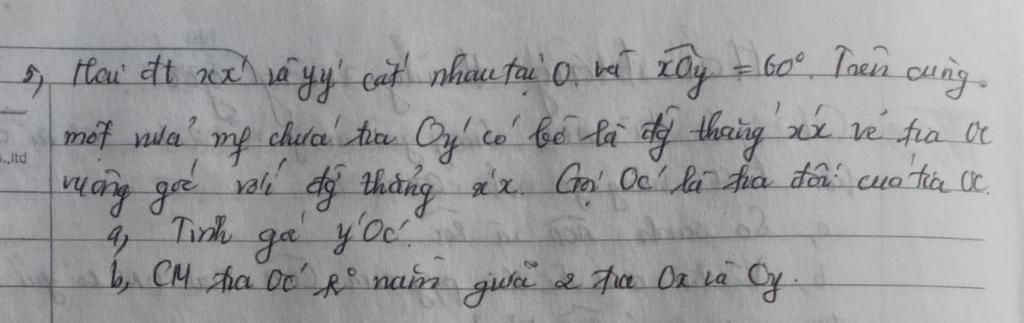 5, Hai đt xx' và yy' cắt nhau tại O. và xOy = 60°. Trên cùng
một nửa mp chứa tia Oy' có bờ là đg thẳng x'x vẽ tia Oc
.,ltd
vuông góc với đg thẳng x'x. Gọi Oc' là tia đối của tia Oc.
a, Tính góc y'Oc'.
b, CM tia Oc' k° nằm giữa 2 tia Ox và Oy.